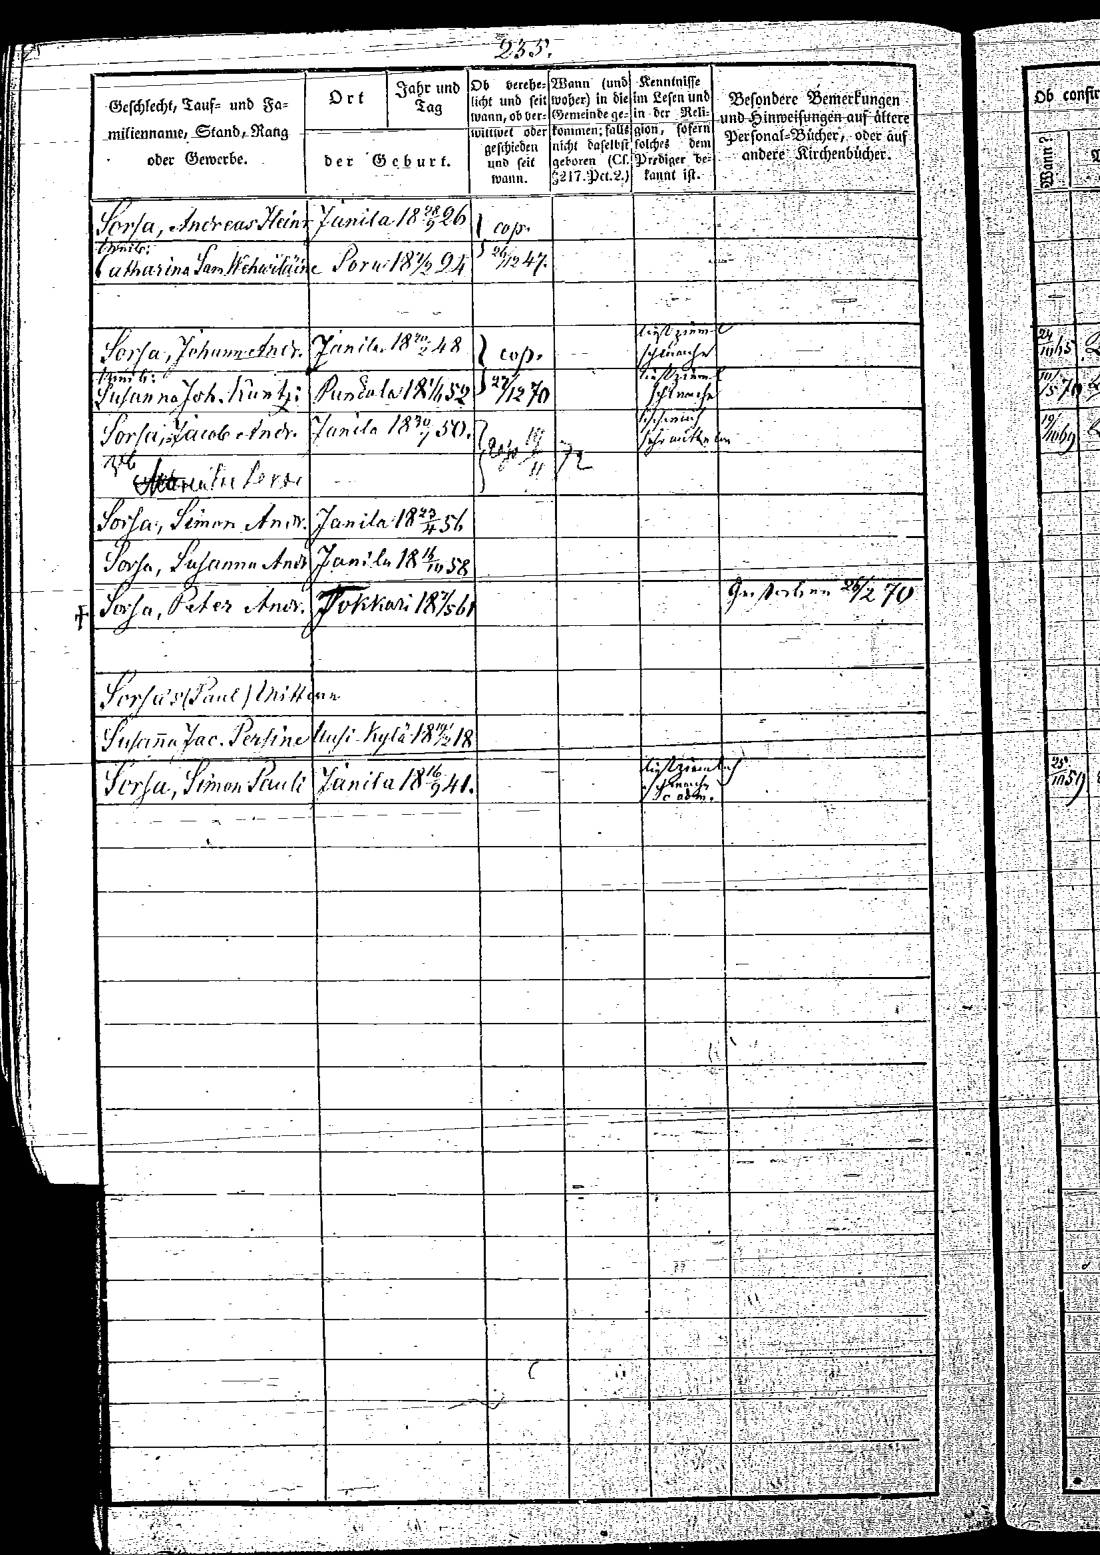 235.
Geschlecht, Tauf- und Fa-
milienname, Stand, Rang
oder Gewerbe.
Ort
Jahr und
Tag
der Geburt.
Ob verehe-
licht und seit
wann, ob ver-
wittwet oder
geschieden
und seit
wann.
Wann (und
woher) in die
Gemeinde ge-
kommen; falls
nicht daselbst
geboren (Cf.
§217. Pct. 2.)
Kenntnisse
im Lesen und
in der Reli-
gion, sofern
solches dem
Prediger be-
kannt ist.
Besondere Bemerkungen
und Hinweisungen auf ältere
Personal-Bücher, oder auf
andere Kirchenbücher.
Ob confir
Wann?
Sorsa, Andreas Heinr Janila 18 28/9 26 } cop.
Catharina Sam Wehwiläine 18 24 26/12 47.
Sorsa, Johann Andr. Janila 18 48 } cop.
schwach
24/10 65
Susanna Joh. Küntzi Puncala 18 52 27/12 70
schwach
70
Sorsa, Jacob Andr. Janila 18 30/7 50.
19/10 69
72
Sorsa, Simon Andr. Janila 18 23/4 56
Sorsa, Susanna Andr Janila 18 16/10 58
+ Sorsa, Peter Andr. Tokkari 18 7/5 61 Gestorben 26/2 70
Sorsa's (Paul) Wittwe
Susanna Jac. Persine Uusi-Kylä 18 18
Sorsa, Simon Pauli Janila 18 16/9 41.
schwach
25/10 59